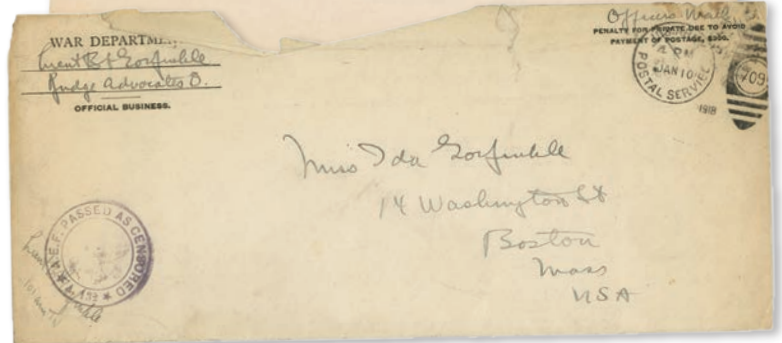 WAR DEPARTME
Lieut B L Gorfinkle
Judge Advocates O.
OFFICIAL BUSINESS.
Officers Mail
PENALTY FOR PRIVATE USE TO AVOID
PAYMENT OF POSTAGE, $300.
PM
JAN 10
POSTAL SERVICE
1918
709
Miss Ida Gorfinkle
14 Washington St
Boston
Mass
USA
A.E.F. PASSED AS CENSORED